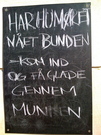 HAR HUMØRET
NÅET BUNDEN
- KOM IND
OG FÅ GLADE
GENNEM
MUNDEN